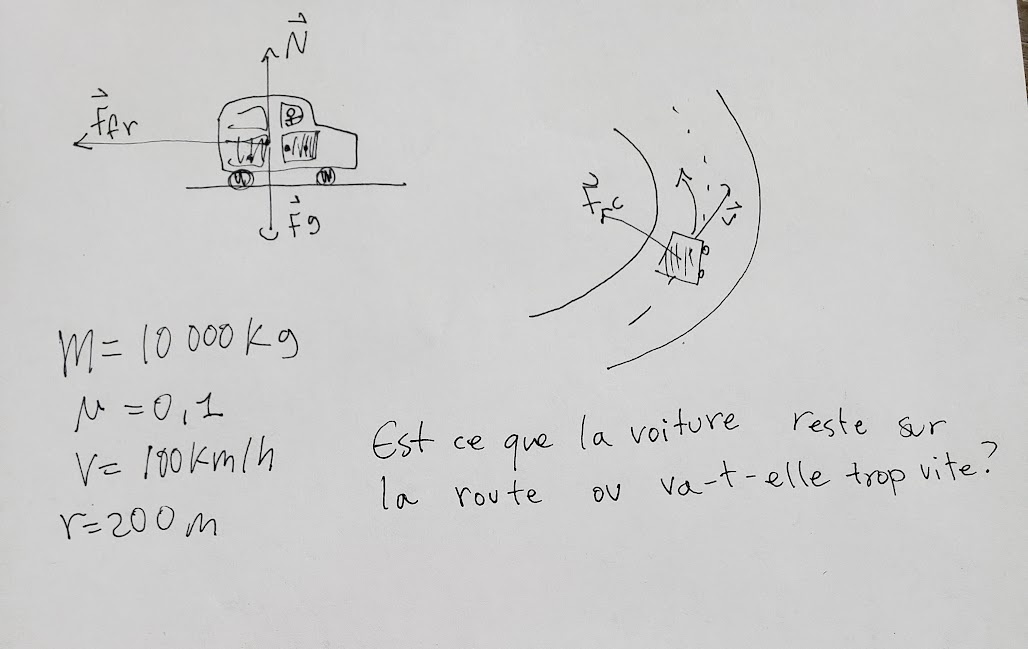 N
Ffr
Fg
Frc
v
m = 10 000 kg
μ = 0,1
v = 100 km/h
r = 200 m
Est ce que la voiture reste sur
la route ou va-t-elle trop vite?